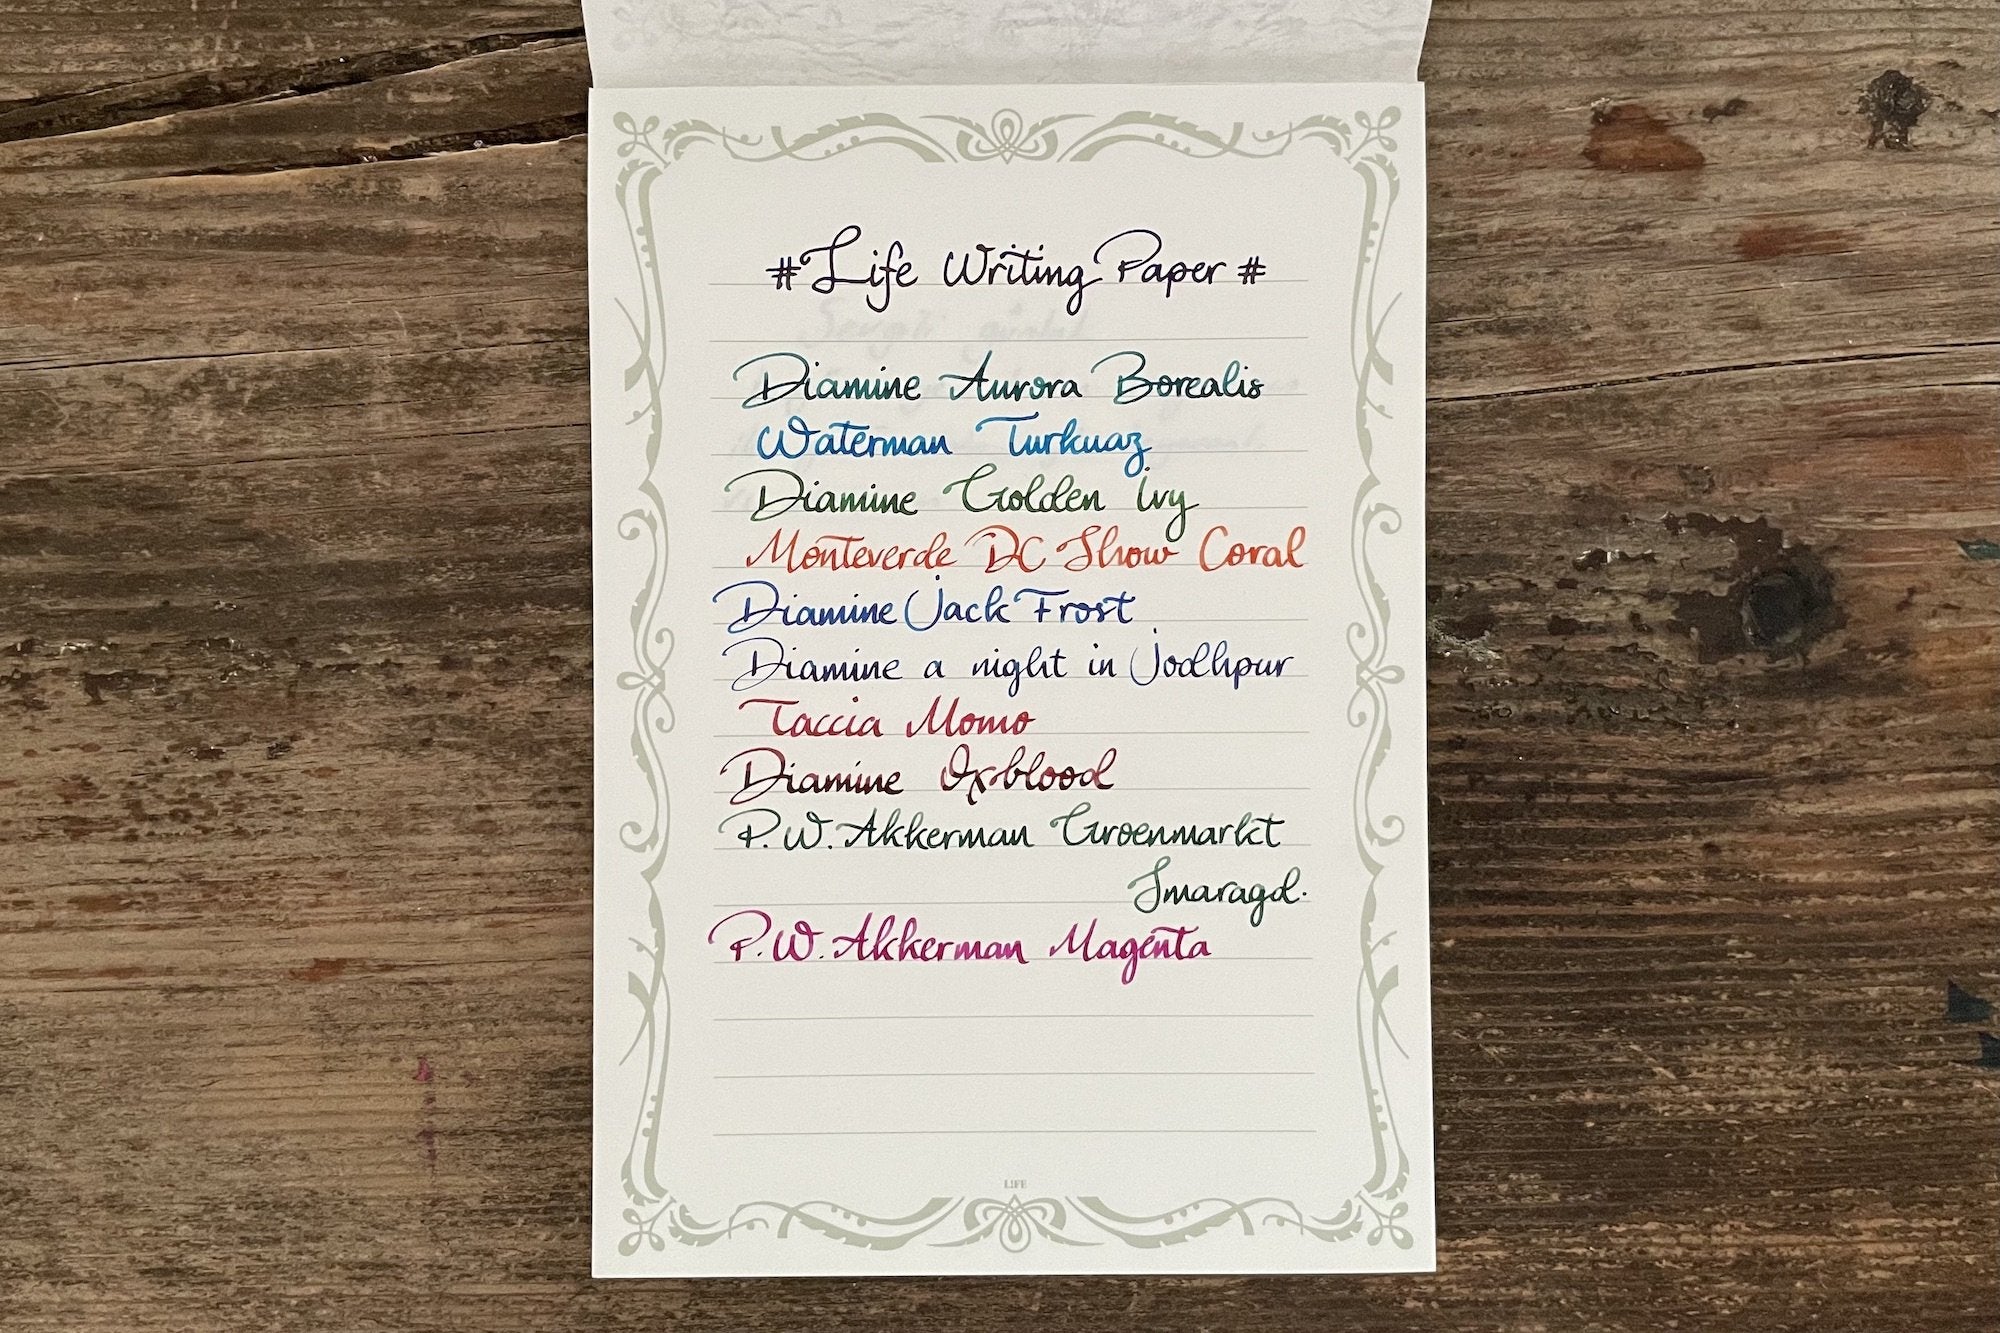 # Life Writing Paper #
Diamine Aurora Borealis
Waterman Turkuaz
Diamine Golden ivy
Monteverde DC Show Coral
Diamine Jack Frost
Diamine a night in Jodhpur
Taccia Momo
Diamine Oxblood
P.W. Akkerman Groenmarkt
Smaragd.
P.W. Akkerman Magenta
LIFE